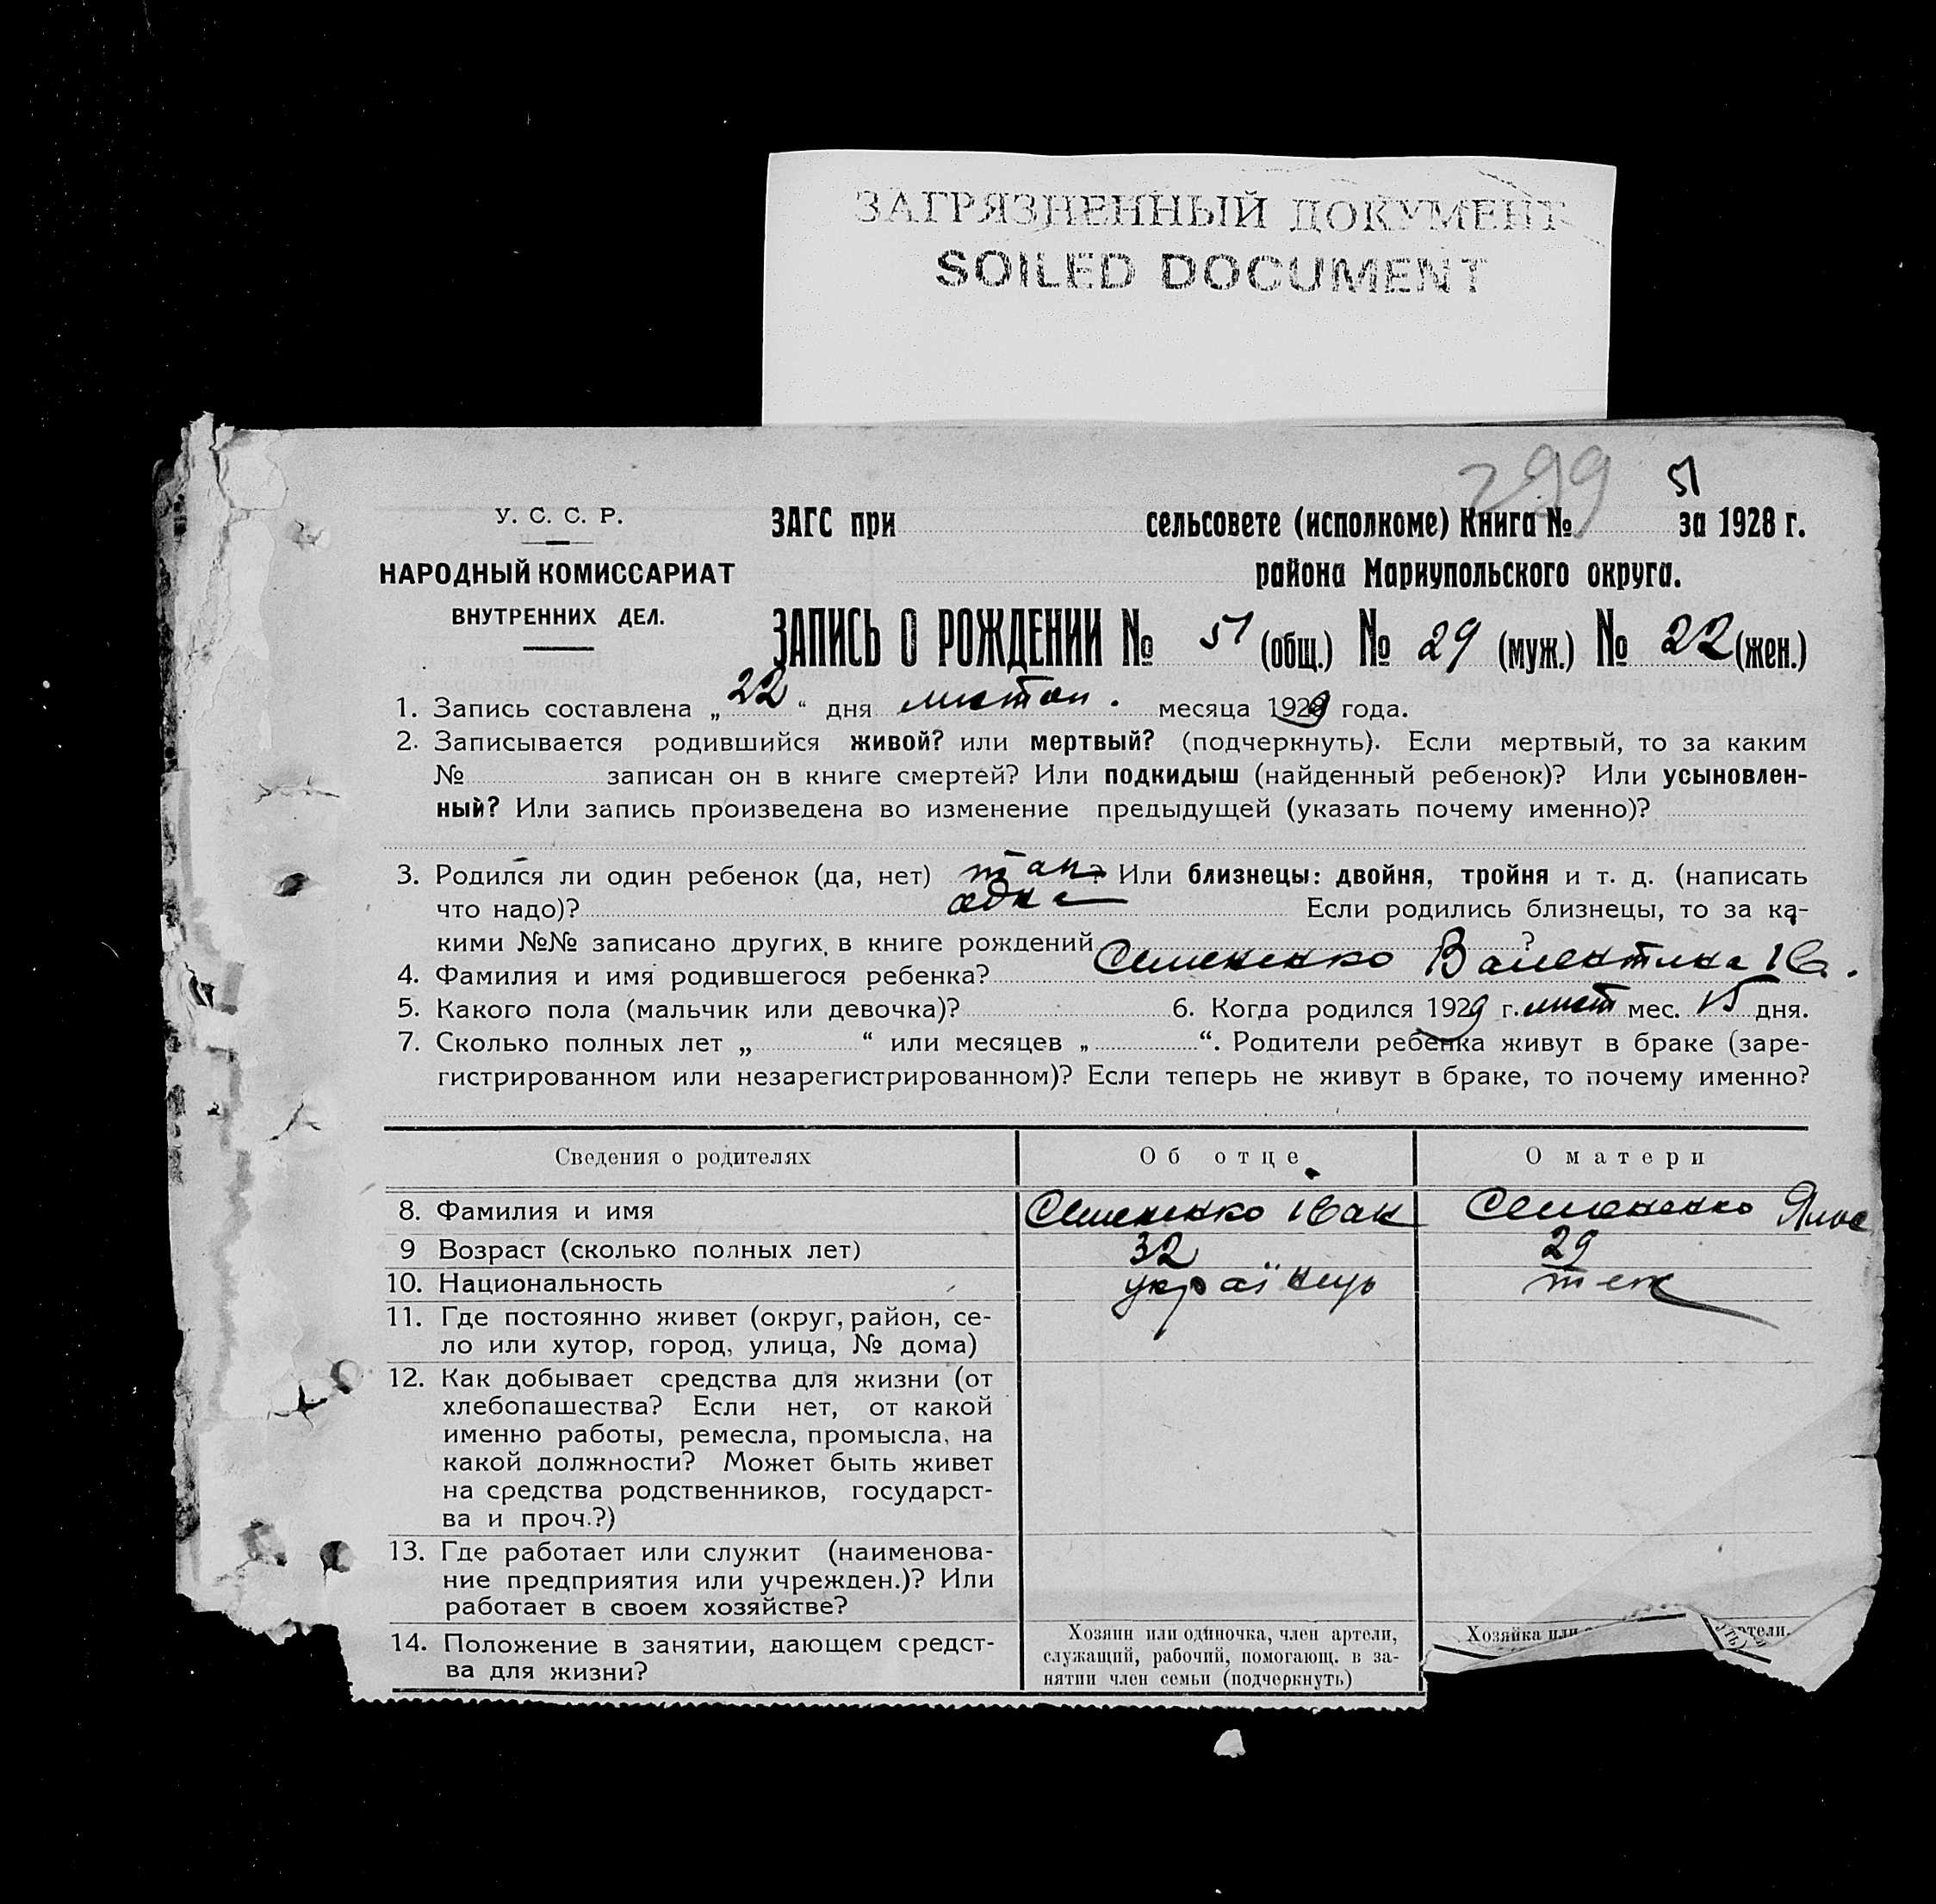 ЗАГРЯЗНЕННЫЙ ДОКУМЕНТ
SOILED DOCUMENT
299 51
У. С. С. Р.
НАРОДНЫЙ КОМИССАРИАТ
ВНУТРЕННИХ ДЕЛ.
ЗАГС при сельсовете (исполкоме) Книга № за 1928 г.
района Мариупольского округа.
ЗАПИСЬ О РОЖДЕНИИ № 51 (общ.) № 29 (муж.) № 22 (жен.)
1. Запись составлена „22“ дня листоп. месяца 1929 года.
2. Записывается родившийся живой? или мертвый? (подчеркнуть). Если мертвый, то за каким
№ записан он в книге смертей? Или подкидыш (найденный ребенок)? Или усыновлен-
ный? Или запись произведена во изменение предыдущей (указать почему именно)?
3. Родился ли один ребенок (да, нет) так? Или близнецы: двойня, тройня и т. д. (написать
что надо)? одна Если родились близнецы, то за ка-
кими №№ записано других в книге рождений ?
4. Фамилия и имя родившегося ребенка? Семененко Валентина Ів.
5. Какого пола (мальчик или девочка)? 6. Когда родился 1929 г. лист мес. 15 дня.
7. Сколько полных лет „ “ или месяцев „ “. Родители ребенка живут в браке (заре-
гистрированном или незарегистрированном)? Если теперь не живут в браке, то почему именно?
Сведения о родителях Об отце О матери
8. Фамилия и имя Семененко Іван Семененко
9 Возраст (сколько полных лет) 32 29
10. Национальность українець теж
11. Где постоянно живет (округ, район, се-
ло или хутор, город, улица, № дома)
12. Как добывает средства для жизни (от
хлебопашества? Если нет, от какой
именно работы, ремесла, промысла, на
какой должности? Может быть живет
на средства родственников, государст-
ва и проч.?)
13. Где работает или служит (наименова-
ние предприятия или учрежден.)? Или
работает в своем хозяйстве?
14. Положение в занятии, дающем средст-
ва для жизни?
Хозяин или одиночка, член артели,
служащий, рабочий, помогающ. в за-
нятии член семьи (подчеркнуть)
Хозяйка или артели,